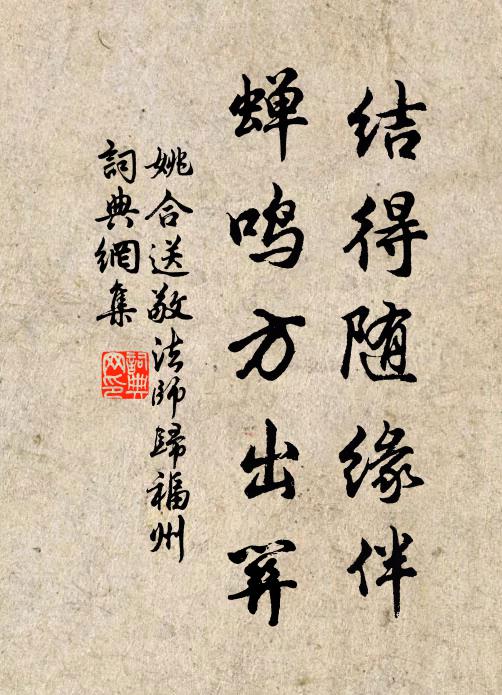 结得随缘伴
蝉鸣方出关
姚合送敬法師歸福州
詞典網集
詞典
网印